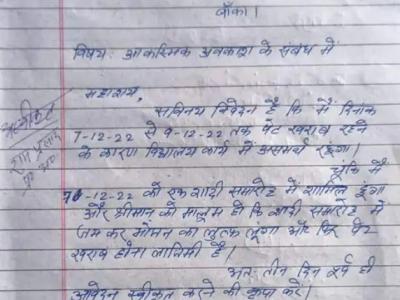 बाँका।
विषय: आकस्मिक अवकाश के संबंध में
महाशय,
सविनय निवेदन है कि मैं दिनांक
7-12-22 से 9-12-22 तक पेट खराब रहने
के कारण विद्यालय कार्य में असमर्थ रहूंगा।
चूंकि मैं
-12-22 को एक शादी समारोह में शामिल हूंगा
और श्रीमान को मालूम हो कि शादी समारोह में
जम कर भोजन का लुत्फ लूंगा और फिर पेट
खराब होना लाजिमी है।
अतः तीन दिन पूर्व ही
आवेदन स्वीकृत करने की कृपा करें।